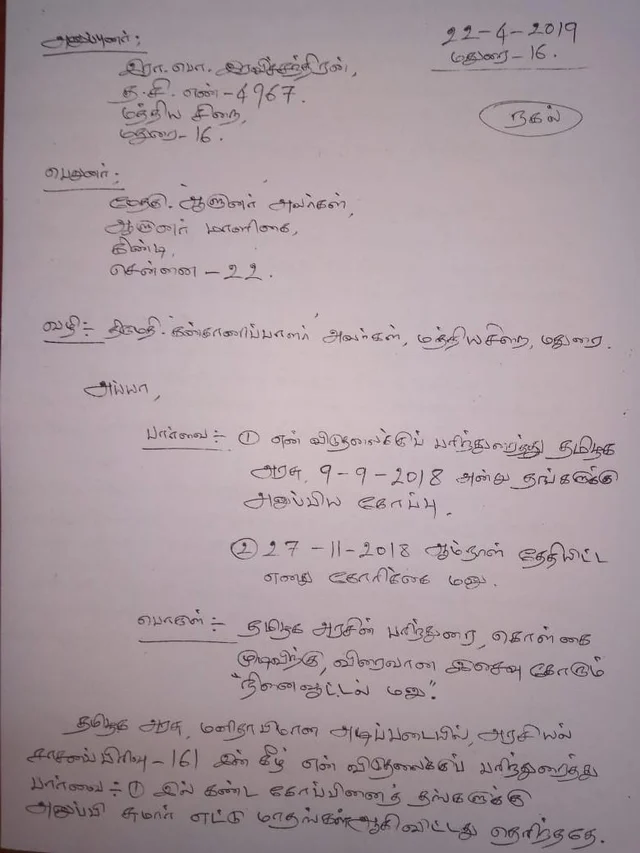 அனுப்புனர்:
22-4-2019
மதுரை-16.
இரா. பொ. இரவிச்சந்திரன்,
த. சி. எண்-4967.
மத்திய சிறை,
மதுரை-16.
நகல்
பெறுனர்:
மேதகு. ஆளுனர் அவர்கள்,
ஆளுனர் மாளிகை,
கிண்டி,
சென்னை-22.
வழி:- திருமதி. கண்காணிப்பாளர் அவர்கள், மத்தியசிறை, மதுரை.
அய்யா,
பார்வை:- ① என் விடுதலைக்குப் பரிந்துரைத்து தமிழக
அரசு, 9-9-2018 அன்று தங்களுக்கு
அனுப்பிய கோப்பு.
② 27-11-2018 ஆம்நாள் தேதியிட்ட
எனது கோரிக்கை மனு.
பொருள்:- தமிழக அரசின் பரிந்துரை, கொள்கை
முடிவிற்கு, விரைவான இசைவு கோரும்
"நினைவூட்டல் மனு".
தமிழக அரசு, மனிதாபிமான அடிப்படையில், அரசியல்
சாசனப்பிரிவு-161 இன் கீழ் என் விடுதலைக்குப் பரிந்துரைத்து
பார்வை:- ① இல் கண்ட கோப்பினைத் தங்களுக்கு
அனுப்பி சுமார் எட்டு மாதங்கள் ஆகிவிட்டது தெரிந்ததே.